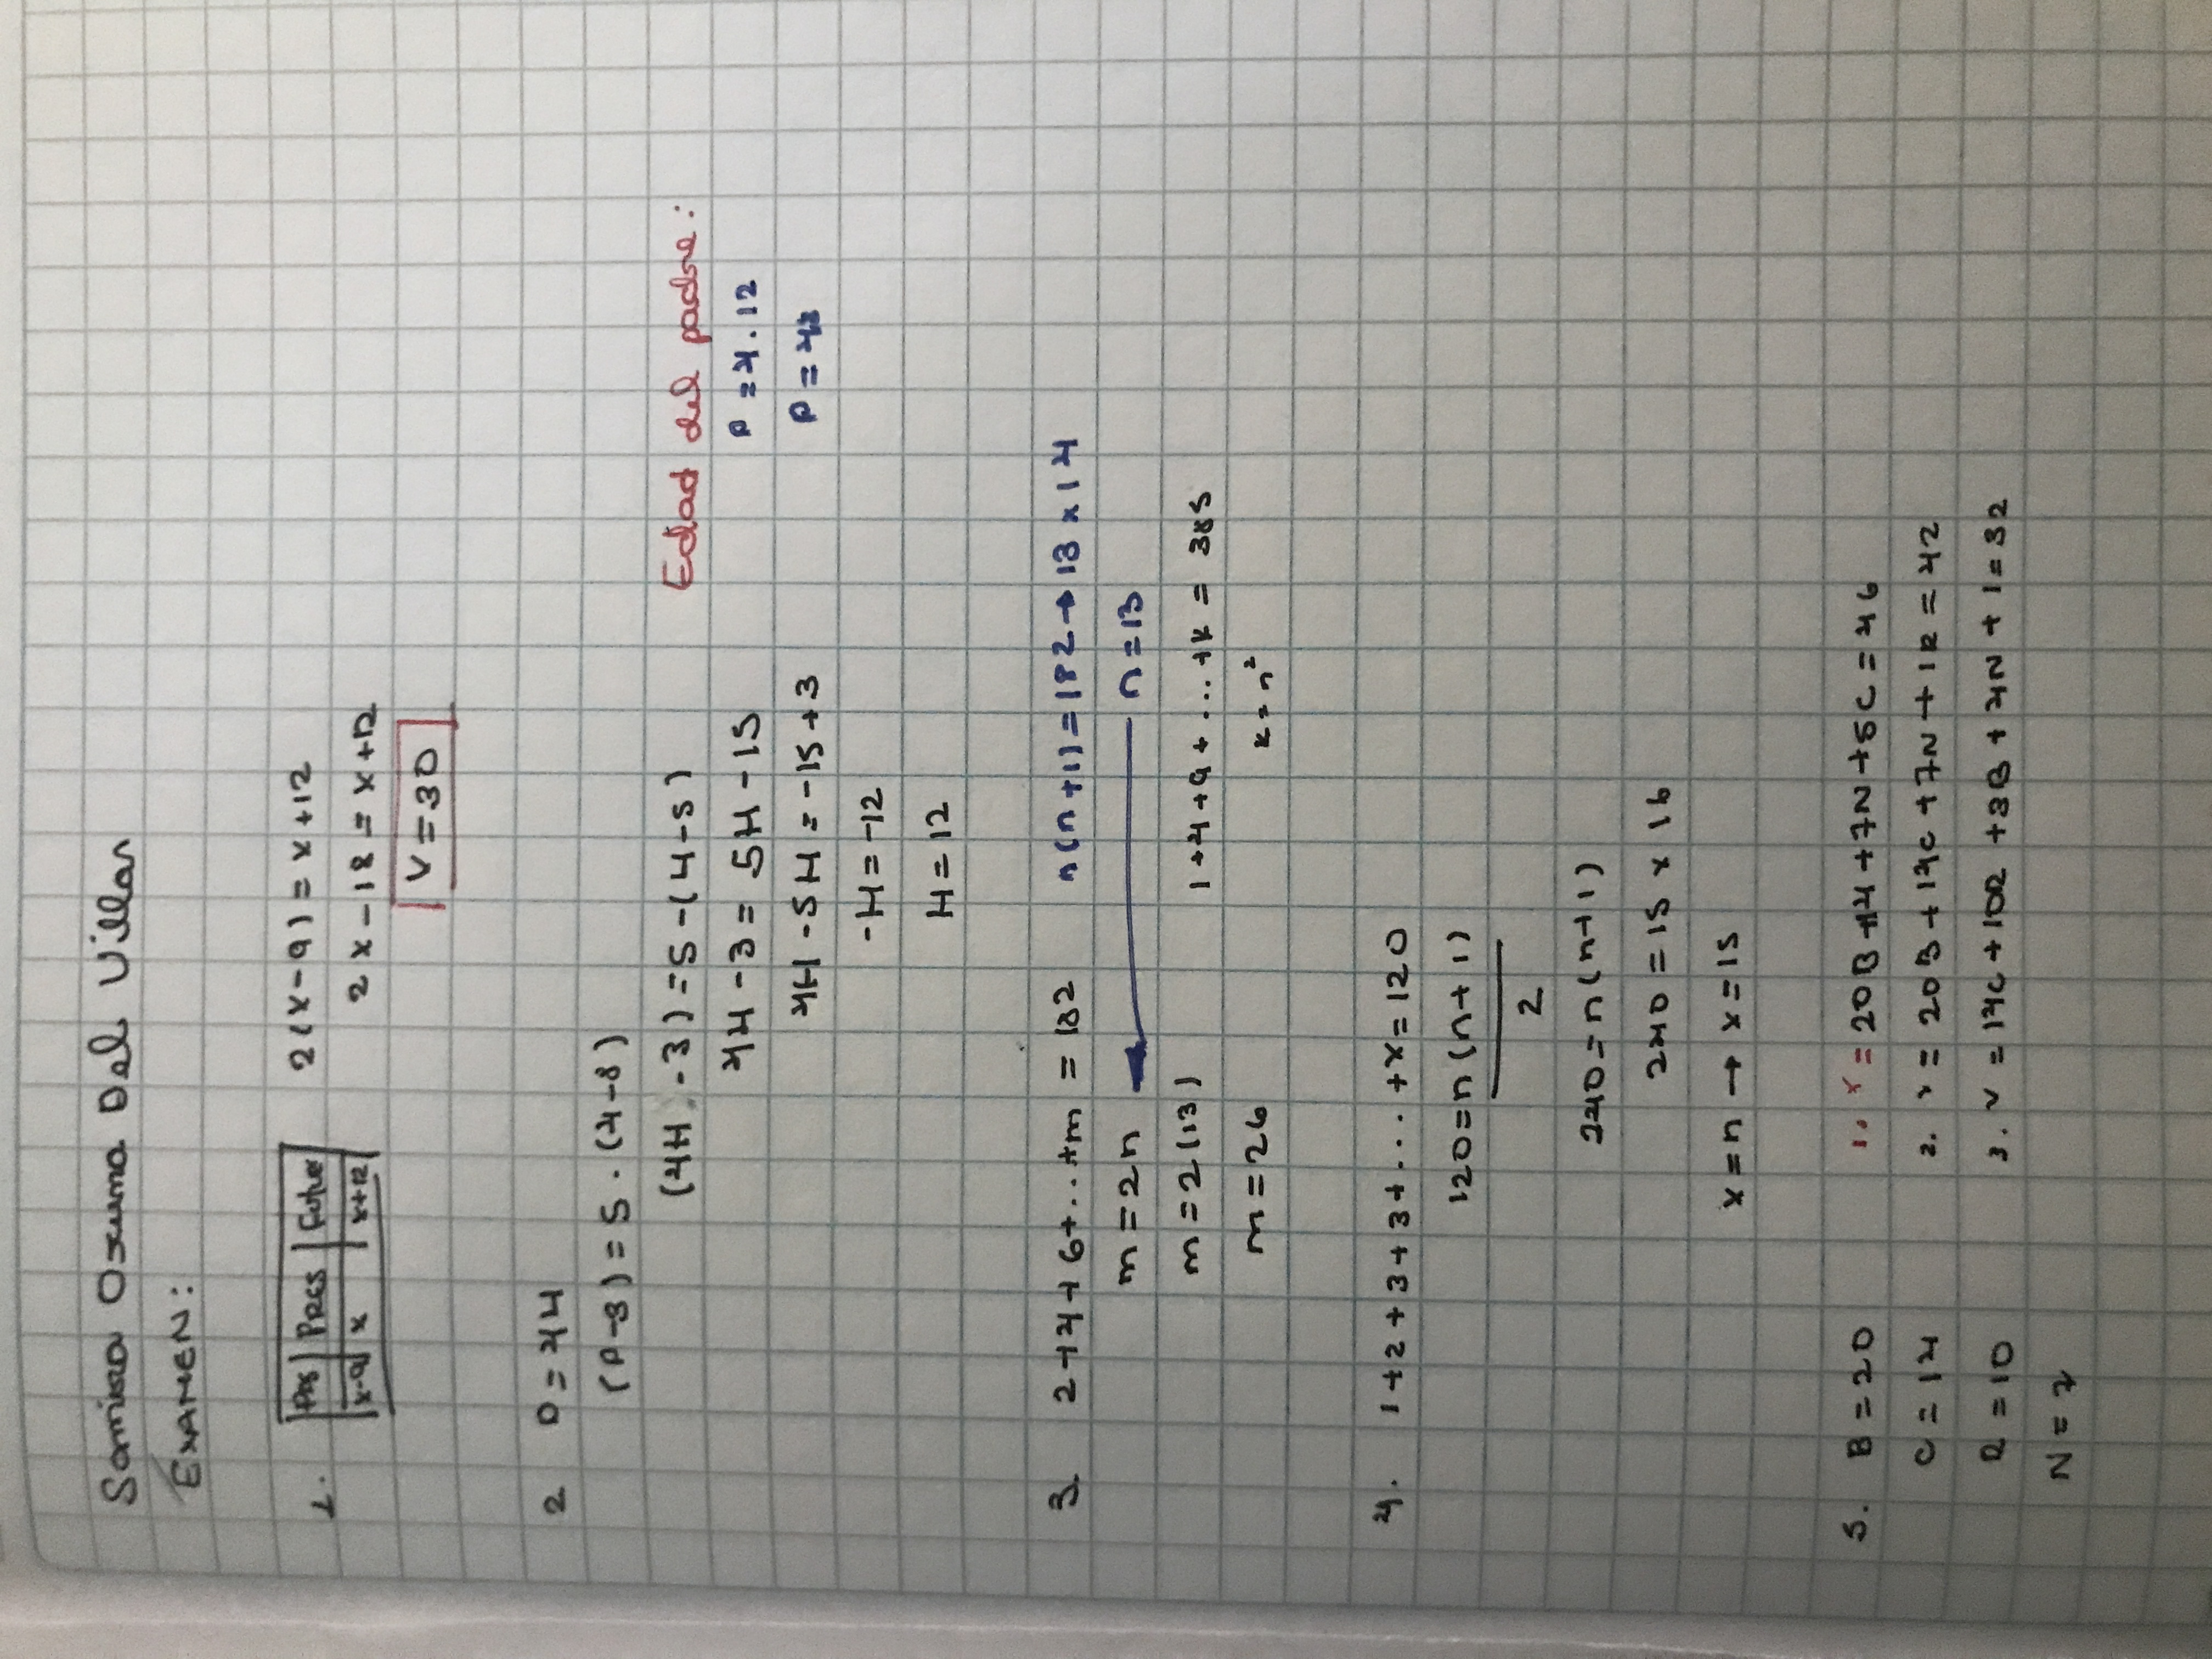 Samira Osuna Del Villar
EXAMEN:
1. Pas PRES Futuro
x-9 x x+12
2(x-9) = x+12
2x-18 = x+12
x=30
2 P=4H
(P-3)=5.(4-3)
(4H -3)=5-(4-5)
4H-3= 5H-15
4H-5H=-15+3
-H=-12
H=12
Edad del padre:
P=4.12
P=48
3. 2+4+6+...+m = 182
m=2n
m=2(13)
m=26
n(n+1)=182→13x14
n=13
1+4+9+...+k = 385
k=n²
4. 1+2+3+3+...+x=120
120=n(n+1)
2
240=n(n+1)
240=15x16
x=n→x=15
5. B=20
C=14
R=10
N=7
1. x=20B+14+7N+5C=46
2. =20B+14C+7N+1R=42
3. =14C+10R+3B+4N+1=32